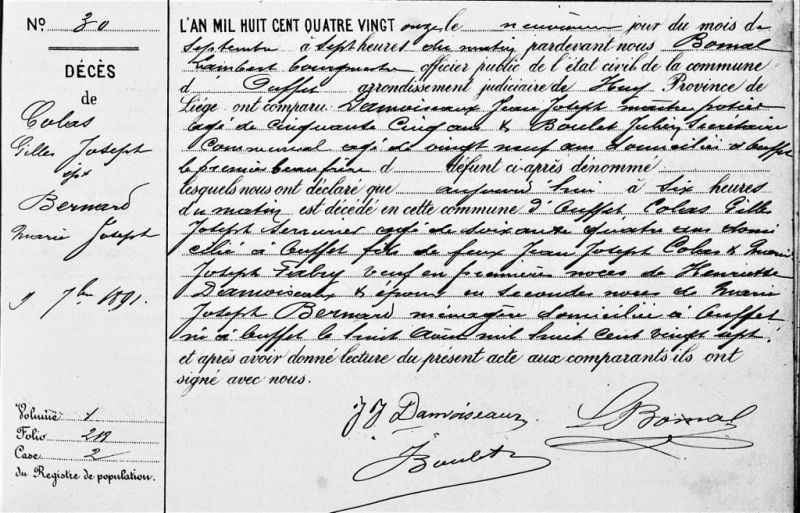 No 30
DÉCÈS
de
Colas
Gilles Joseph
épx
Bernard
Marie Joseph
9 7bre 1891.
Volume 1
Folio 219
Case 2
du Registre de population.
L'AN MIL HUIT CENT QUATRE VINGT onze, le neuvième jour du mois de
Septembre à sept heures du matin pardevant nous Bomal
Lambert bourgmestre officier public de l'état civil de la commune
d'Ouffet arrondissement judiciaire de Huy Province de
Liége ont comparu: Damoiseaux Jean Joseph maître potier
agé de cinquante cinq ans & Boulet Julien Secrétaire
Communal agé de vingt neuf ans domiciliés à Ouffet
le premier beaufrère d défunt ci-après dénommé
lesquels nous ont déclaré que aujourd'hui à six heures
du matin est décédé en cette commune d'Ouffet, Colas Gilles
Joseph Serrurier agé de soixante quatre ans domi
cilié à Ouffet fils de feux Jean Joseph Colas & Marie
Joseph Fabry veuf en premières noces de Henriette
Damoiseaux & époux en secondes noces de Marie
Joseph Bernard ménagère domiciliée à Ouffet,
né à Ouffet le huit Août mil huit cent vingt sept.
et après avoir donné lecture du présent acte aux comparants ils ont
signé avec nous.
JJ Damoiseaux
LBomal
JBoulet